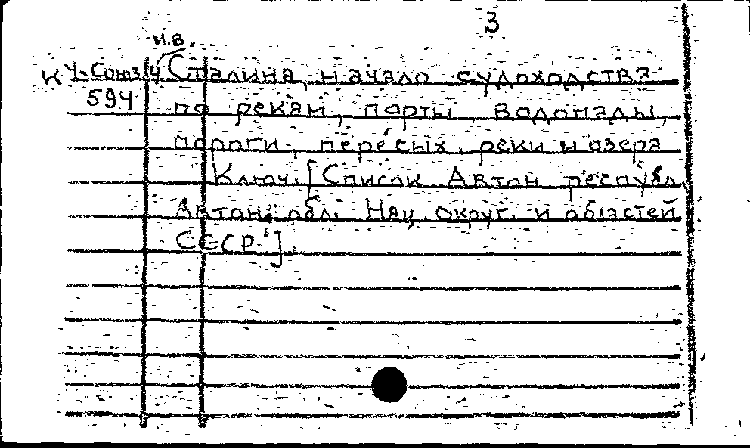 3
И.В.
К Ч-Союз/4 Сталина, начало судоходства
594 по рекам, порты водопады,
пороги, пересых. реки и озера
Ключ. [Список Автон республ.
Автон. обл. Нац. округ. и областей
СССР.]